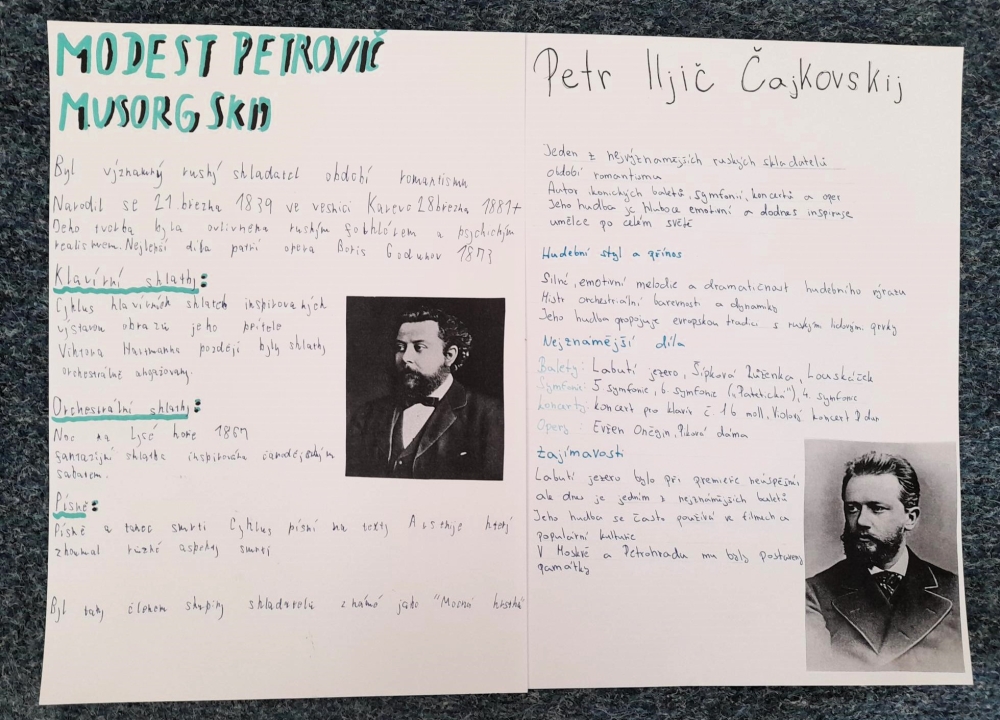 MODEST PETROVIČ
MUSORGSKIJ
Byl významný ruský skladatel období romantismu
Narodil se 21. března 1839 ve vesnici Karevo 28 března 1881+
Jeho tvorba byla ovlivněna ruským folklórem a psychickým
realismem. Nejlepší díla patří opera Boris Godunov 1873
Klavírní skladby:
Cyklus klavírních skladeb inspirovaných
výstavou obrazů jeho přítele
Viktora Hartmanna později byly skladby
orchestrálně
Orchestrální skladby:
Noc na Lysé hoře 1867
fantazijní skladba inspirována čarodějským
sabatem.
Písně:
Písně a tanec smrti Cyklus písní na texty který
zkoumal různé aspekty smrti
Byl taky členem skupiny skladatelů známé jako "Mocná hrstka"
Petr Iljič Čajkovskij
Jeden z nejvýznamějších ruských skladatelů
období romantismu
Autor ikonických baletů, symfonií, koncertů a oper
Jeho hudba je hluboce emotivní a dodnes inspiruje
umělce po celém světě
Hudební styl a přínos
Silné, emotivní melodie a dramatičnost hudebního výrazu
Mistr orchestrální barevnosti a dynamiky
Jeho hudba propojuje evropskou tradici s ruskými lidovými prvky
Nejznámější díla
Balety: Labutí jezero, Šípková Růženka, Louskáček
Symfonie: 5 symfonie, 6. symfonie („Patetická"), 4. symfonie
Koncerty: koncert pro klavír č 1 b moll, Violový koncert D dur
Opery: Evžen Oněgin, Piková dáma
Zajímavosti
Labutí jezero bylo při premiéře neúspěšné
ale dnes je jedním z nejznámějších baletů
Jeho hudba se často používá ve filmech a
populární kultuře
V Moskvě a Petrohradu mu byly postaveny
památky